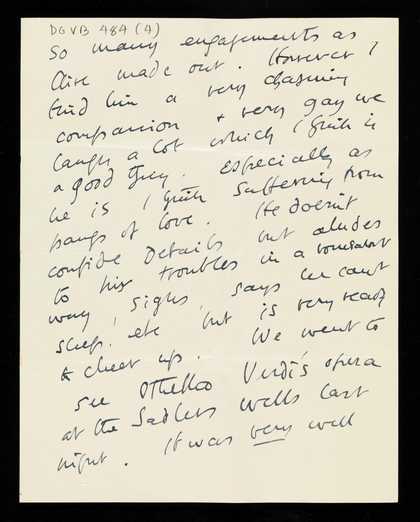 DGVB 484 (4)
So many engagements as
Clive made out. However I
find him a very charming
companion & very gay we
laugh a lot which I think is
a good thing. Especially as
he is I think suffering from
pangs of love. He doesn't
confide Details but aludes
to his troubles in a
way, sighs, says he cant
sleep. etc but is very ready
to cheer up. We went to
see Othello Verdi's opera
at the Sadlers Wells last
night. It was very well